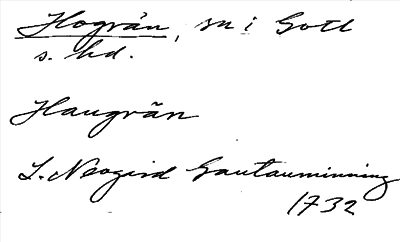 Hogrän, sn i Gotl
s. hd.
Haugrän
L. Neogard Gautauminning
1732